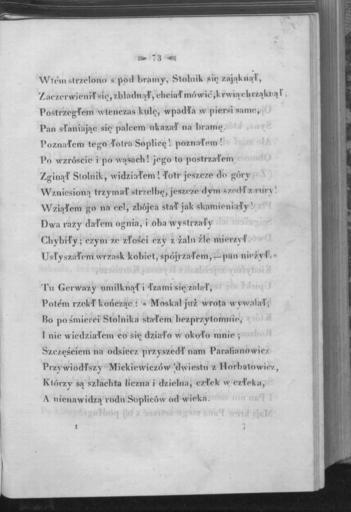 73
Wtém strzelono s pod bramy, Stolnik się zająknął,
Zaczerwienił się, zbladnął, chciał mówić, krwią chrząknął.
Postrzegłem wtenczas kulę, wpadła w piersi same,
Pan słaniając się palcem ukazał na bramę.
Poznałem tego łotra Soplicę! poznałem!
Po wzroście i po wąsach! jego to postrzałem
Zginął Stolnik, widziałem! łotr jeszcze do góry
Wzniesioną trzymał strzelbę, jeszcze dym szedł z rury!
Wziąłem go na cel, zbójca stał jak skamieniały!
Dwa razy dałem ognia, i oba wystrzały
Chybiły; czym ze złości czy z żalu źle mierzył.
Usłyszałem wrzask kobiet, spójrzałem, — pan nie żył. »
Tu Gerwazy umilknął i łzami się zalał,
Potém rzekł kończąc: « Moskal już wrota wywalał;
Bo po śmierci Stolnika stałem bezprzytomnie,
I nie wiedziałem co się działo w około mnie;
Szczęściem na odsiecz przyszedł nam Parafianowicz
Przywiodłszy Mickiewiczów dwiestu z Horbatowicz,
Którzy są szlachta liczna i dzielna, człek w człeka,
A nienawidzą rodu Sopliców od wieka.
1 7